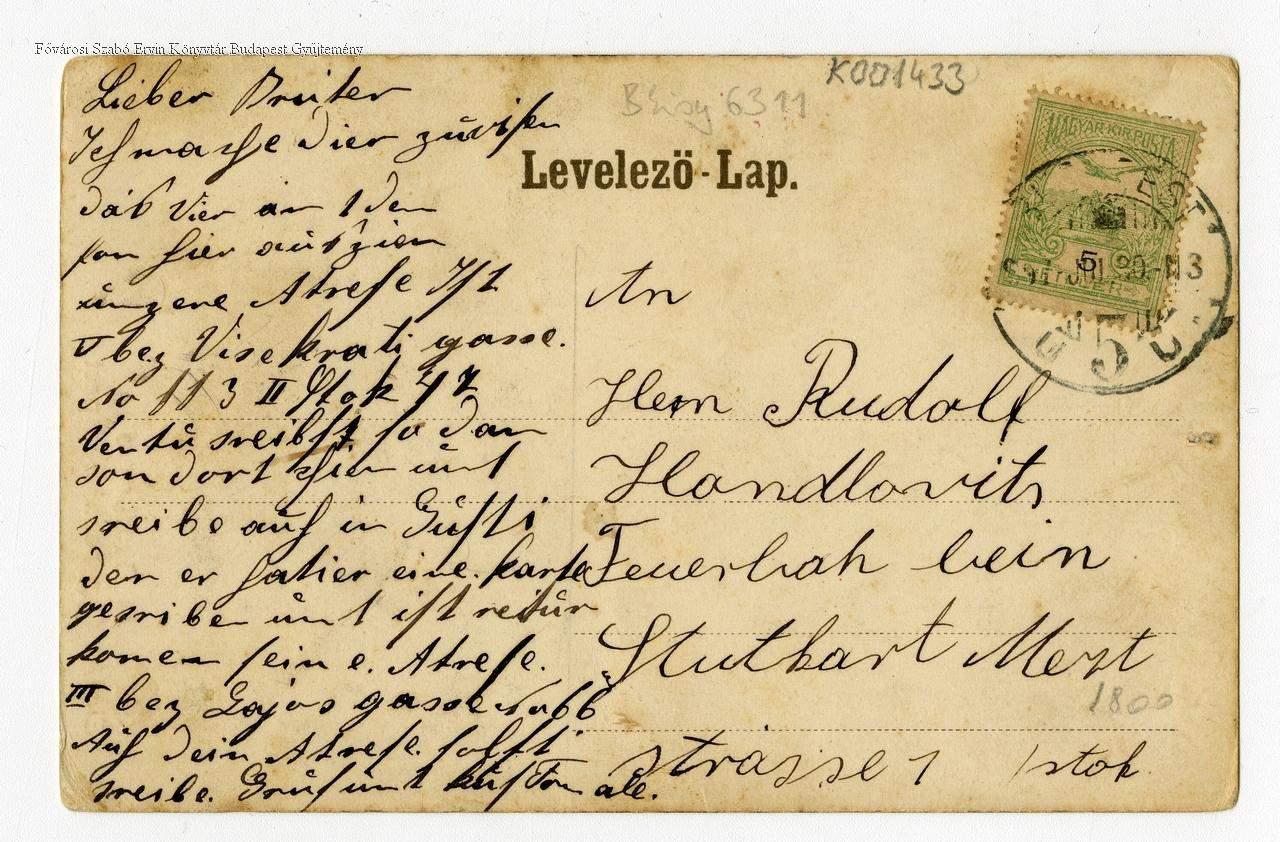 Fővárosi Szabó Ervin Könyvtár Budapest Gyűjtemény
K001433
6311
Levelező-Lap.
MAGYAR·KIR·POSTA
5
Lieber Bruter
Ich mache dier zuwisen
das Vier am 1 dem
fon hier ausziem
unzere Atrese Ist
V bez Visekrati gasse.
No 113 II Stok
Ventu sreibst so dan
son dort hien unt
sreibe auch in Gusti
den er hat ier eine karte
gesriben unt ist retur
komen sein e. Atrese.
III bez Lajos gasse No 66
Auf dein Atrese. solsti
sreibe. Gruss unt kus Fon ale.
An
Herrn Rudolf
Handlovits
Feuerbah bein
Stuthart Merzt
1800
strasse 1 /stok